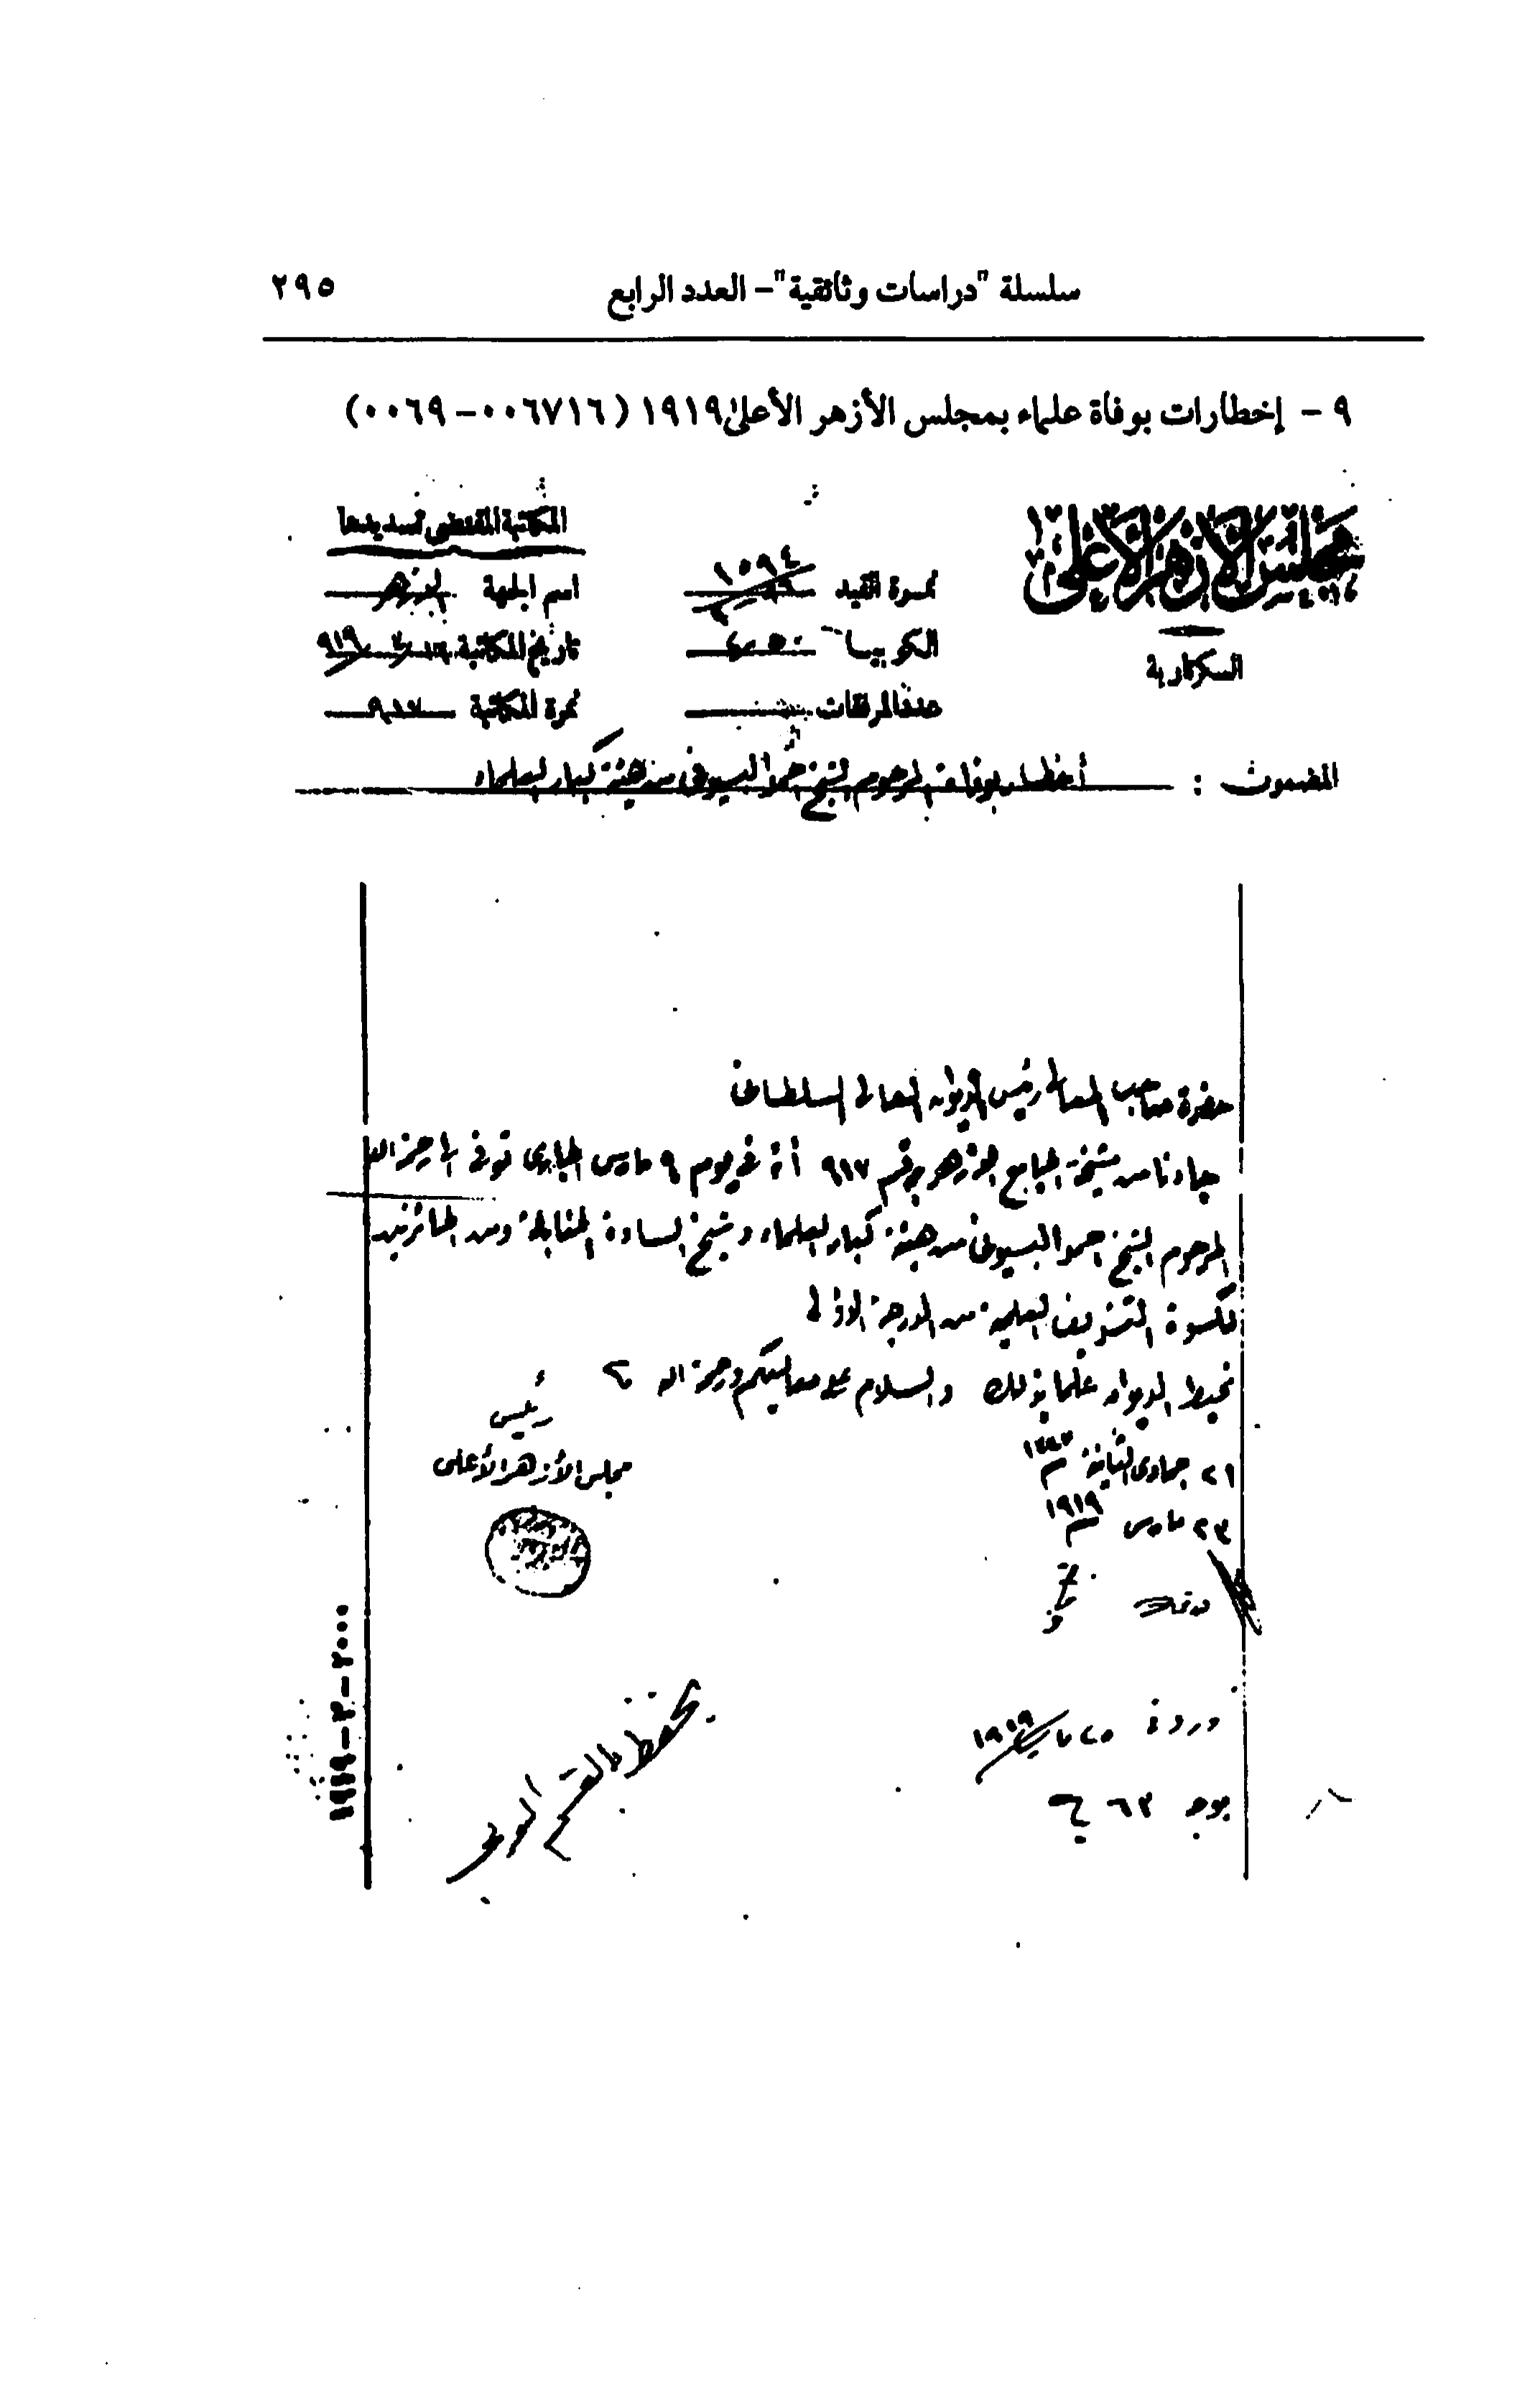 سلسلة "دراسات وثائقية" – العدد الرابع ٢٩٥
٩ – إخطارات بوفاة علماء بمجلس الأزهر الأعلى ١٩١٩ (٠٠٦٧١٦ – ٠٠٦٩)
مجلس الأزهر الأعلى
السكرتارية
نمرة القيد ١٥٩٤
الكوبيا
عدد المرفقات
المكاتبة المقتضى تسديدها
اسم الجهة الازهر
تاريخ المكاتبة ١٦ ٣ ٩١٩
نمرة المكاتبة ٩١٧
المضمون : أخطار بوفاة المرحوم الشيخ احمد البسيونى من هيئة كبار العلماء
حضرة صاحب المعالى رئيس الديوان العالى السلطانى
جاءنا من مشيخة الجامع الازهر برقم ٩١٧ أنه فى يوم ٩ مارس الجارى توفى الى رحمة الله
المرحوم الشيخ احمد البسيونى من هيئة كبار العلماء وشيخ السادة الحنابلة ومن الحائزين
لكسوة التشريف العلمية من الدرجة الاولى
نحيط الديوان علما بذلك والسلام على معاليكم ورحمة الله
رئيس
مجلس الأزهر الأعلى
٢١ جمادى الثانية سنة ١٣٣٧
٢٣ مارس سنة ١٩١٩
وردت ٢٥ مارس ١٩١٩
يومية ٦٣
يحفظ بالقسم العربى
١٩١٩–٣–٢٠٠٠